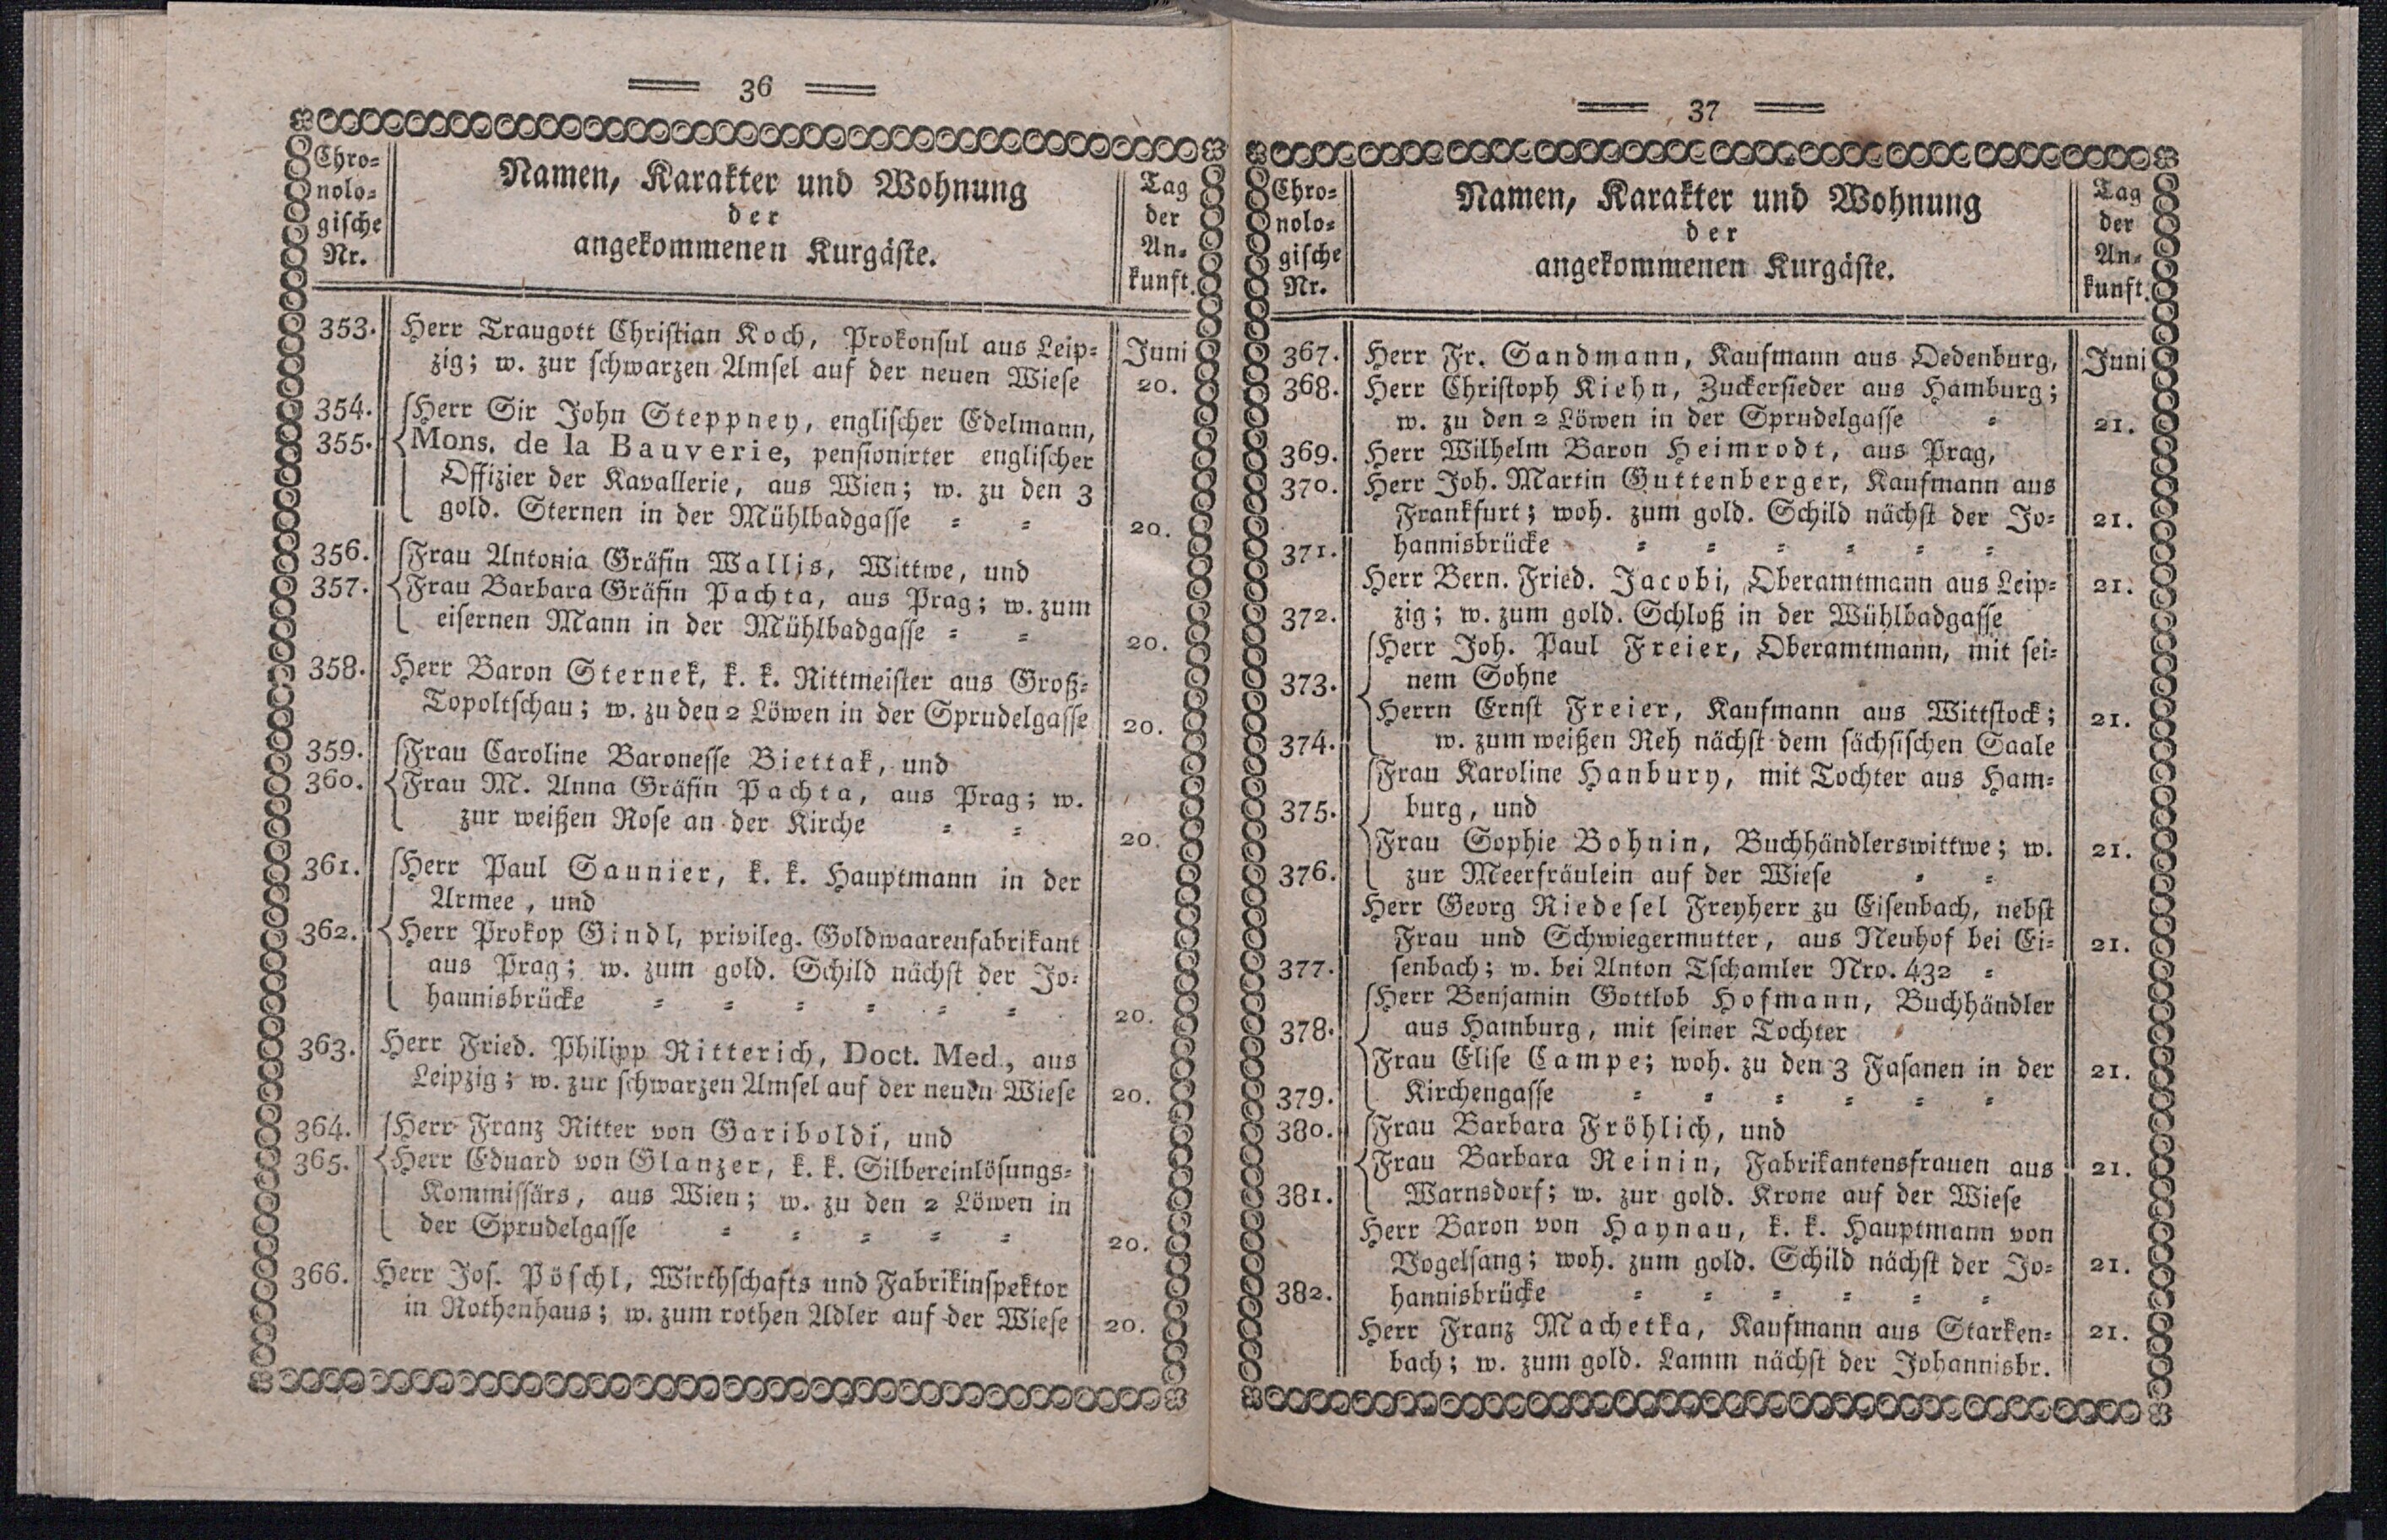 36
Chro-
nolo-
gische
Nr.
Namen, Karakter und Wohnung
der
angekommenen Kurgäste.
Tag
der
An-
kunft.
353. Herr Traugott Christian Koch, Prokonsul aus Leip- Juni
zig; w. zur schwarzen Amsel auf der neuen Wiese 20.
354. Herr Sir John Steppney, englischer Edelmann,
355. Mons. de la Bauverie, pensionirter englischer
Offizier der Kavallerie, aus Wien; w. zu den 3
gold. Sternen in der Mühlbadgasse - - 20.
356. Frau Antonia Gräfin Wallis, Wittwe, und
357. Frau Barbara Gräfin Pachta, aus Prag; w. zum
eisernen Mann in der Mühlbadgasse - - 20.
358. Herr Baron Sternek, k. k. Rittmeister aus Groß-
Topoltschau; w. zu den 2 Löwen in der Sprudelgasse 20.
359. Frau Caroline Baronesse Biettak, und
360. Frau M. Anna Gräfin Pachta, aus Prag; w.
zur weißen Rose an der Kirche - - 20.
361. Herr Paul Saunier, k. k. Hauptmann in der
Armee, und
362. Herr Prokop Gindl, privileg. Goldwaarenfabrikant
aus Prag; w. zum gold. Schild nächst der Jo-
hannisbrücke - - - - - - 20.
363. Herr Fried. Philipp Ritterich, Doct. Med., aus
Leipzig; w. zur schwarzen Amsel auf der neuen Wiese 20.
364. Herr Franz Ritter von Gariboldi, und
365. Herr Eduard von Glanzer, k. k. Silbereinlösungs-
Kommissärs, aus Wien; w. zu den 2 Löwen in
der Sprudelgasse - - - - - 20.
366. Herr Jos. Pöschl, Wirthschafts und Fabrikinspektor
in Rothenhaus; w. zum rothen Adler auf der Wiese 20.
37
Chro-
nolo-
gische
Nr.
Namen, Karakter und Wohnung
der
angekommenen Kurgäste.
Tag
der
An-
kunft.
367. Herr Fr. Sandmann, Kaufmann aus Oedenburg, Juni
368. Herr Christoph Kiehn, Zuckersieder aus Hamburg;
w. zu den 2 Löwen in der Sprudelgasse - 21.
369. Herr Wilhelm Baron Heimrodt, aus Prag,
370. Herr Joh. Martin Guttenberger, Kaufmann aus
Frankfurt; woh. zum gold. Schild nächst der Jo- 21.
371. hannisbrücke - - - - - -
Herr Bern. Fried. Jacobi, Oberamtmann aus Leip- 21.
372. zig; w. zum gold. Schloß in der Wühlbadgasse
Herr Joh. Paul Freier, Oberamtmann, mit sei-
373. nem Sohne
Herrn Ernst Freier, Kaufmann aus Wittstock; 21.
374. w. zum weißen Reh nächst dem sächsischen Saale
Frau Karoline Hanbury, mit Tochter aus Ham-
375. burg, und
Frau Sophie Bohnin, Buchhändlerswittwe; w. 21.
376. zur Meerfräulein auf der Wiese - -
Herr Georg Riedesel Freyherr zu Eisenbach, nebst
Frau und Schwiegermutter, aus Neuhof bei Ei- 21.
377. senbach; w. bei Anton Tschamler Nro. 432 -
Herr Benjamin Gottlob Hofmann, Buchhändler
378. aus Hamburg, mit seiner Tochter
Frau Elise Campe; woh. zu den 3 Fasanen in der 21.
379. Kirchengasse - - - - - -
380. Frau Barbara Fröhlich, und
Frau Barbara Reinin, Fabrikantensfrauen aus 21.
381. Warnsdorf; w. zur gold. Krone auf der Wiese
Herr Baron von Haynau, k. k. Hauptmann von
Vogelsang; woh. zum gold. Schild nächst der Jo- 21.
382. hannisbrücke - - - - - -
Herr Franz Machetka, Kaufmann aus Starken- 21.
bach; w. zum gold. Lamm nächst der Johannisbr.